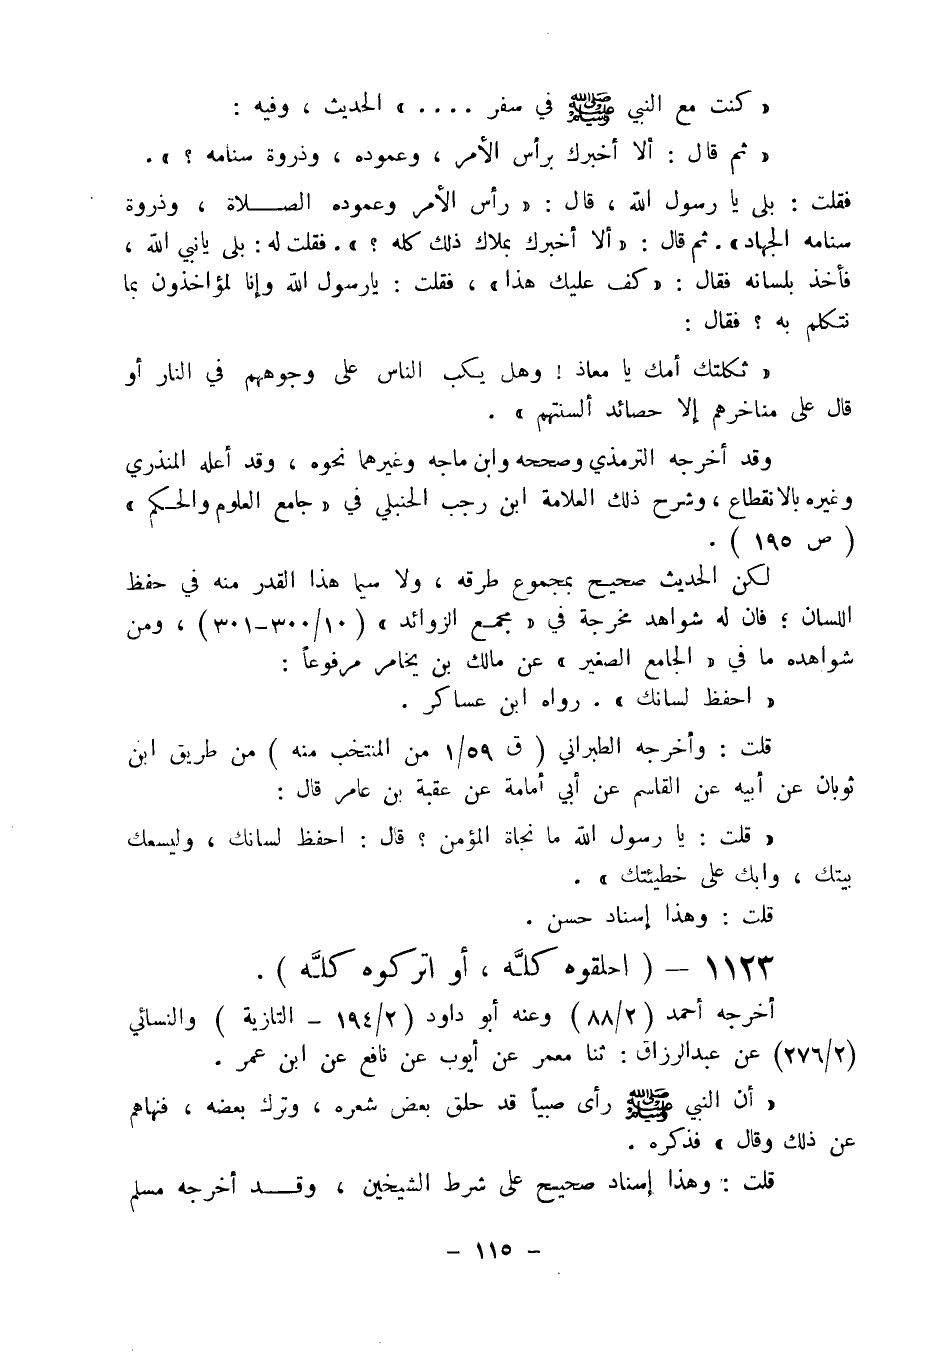 « كنت مع النبي ﷺ في سفر .... » الحديث ، وفيه :
« ثم قال : ألا أخبرك برأس الأمر ، وعموده ، وذروة سنامه ؟ » .
فقلت : بلى يا رسول الله ، قال : « رأس الأمر وعموده الصلاة ، وذروة
سنامه الجهاد» . ثم قال : « ألا أخبرك بملاك ذلك كله ؟ » . فقلت له : بلى يانبي الله ،
فأخذ بلسانه فقال : « كف عليك هذا » ، فقلت : يارسول الله وإنا لمؤاخذون بما
نتكلم به ؟ فقال :
« ثكلتك أمك يا معاذ ! وهل يكب الناس على وجوههم في النار أو
قال على مناخرهم إلا حصائد ألسنتهم » .
وقد أخرجه الترمذي وصححه وابن ماجه وغيرهما نحوه ، وقد أعله المنذري
وغيره بالانقطاع ، وشرح ذلك العلامة ابن رجب الحنبلي في « جامع العلوم والحكم »
( ص ١٩٥ ) .
لكن الحديث صحيح بمجموع طرقه ، ولا سيما هذا القدر منه في حفظ
اللسان ؛ فان له شواهد مخرجة في « مجمع الزوائد » ( ١٠/٣٠٠-٣٠١ ) ، ومن
شواهده ما في « الجامع الصغير » عن مالك بن يخامر مرفوعاً :
« احفظ لسانك » . رواه ابن عساكر .
قلت : وأخرجه الطبراني ( ق ١/٥٩ من المنتخب منه ) من طريق ابن
ثوبان عن أبيه عن القاسم عن أبي أمامة عن عقبة بن عامر قال :
« قلت : يا رسول الله ما نجاة المؤمن ؟ قال : احفظ لسانك ، وليسعك
بيتك ، وابك على خطيئتك » .
قلت : وهذا إسناد حسن .
١١٢٣ – ( احلقوه كلَّه ، أو اتركوه كلَّه ) .
أخرجه أحمد ( ٨٨/٢ ) وعنه أبو داود ( ١٩٤/٢ – التازية ) والنسائي
(٢٧٦/٢) عن عبدالرزاق : ثنا معمر عن أيوب عن نافع عن ابن عمر .
« أن النبي ﷺ رأى صبياً قد حلق بعض شعره ، وترك بعضه ، فنهاهم
عن ذلك وقال » فذكره .
قلت : وهذا إسناد صحيح على شرط الشيخين ، وقد أخرجه مسلم
– ١١٥ –